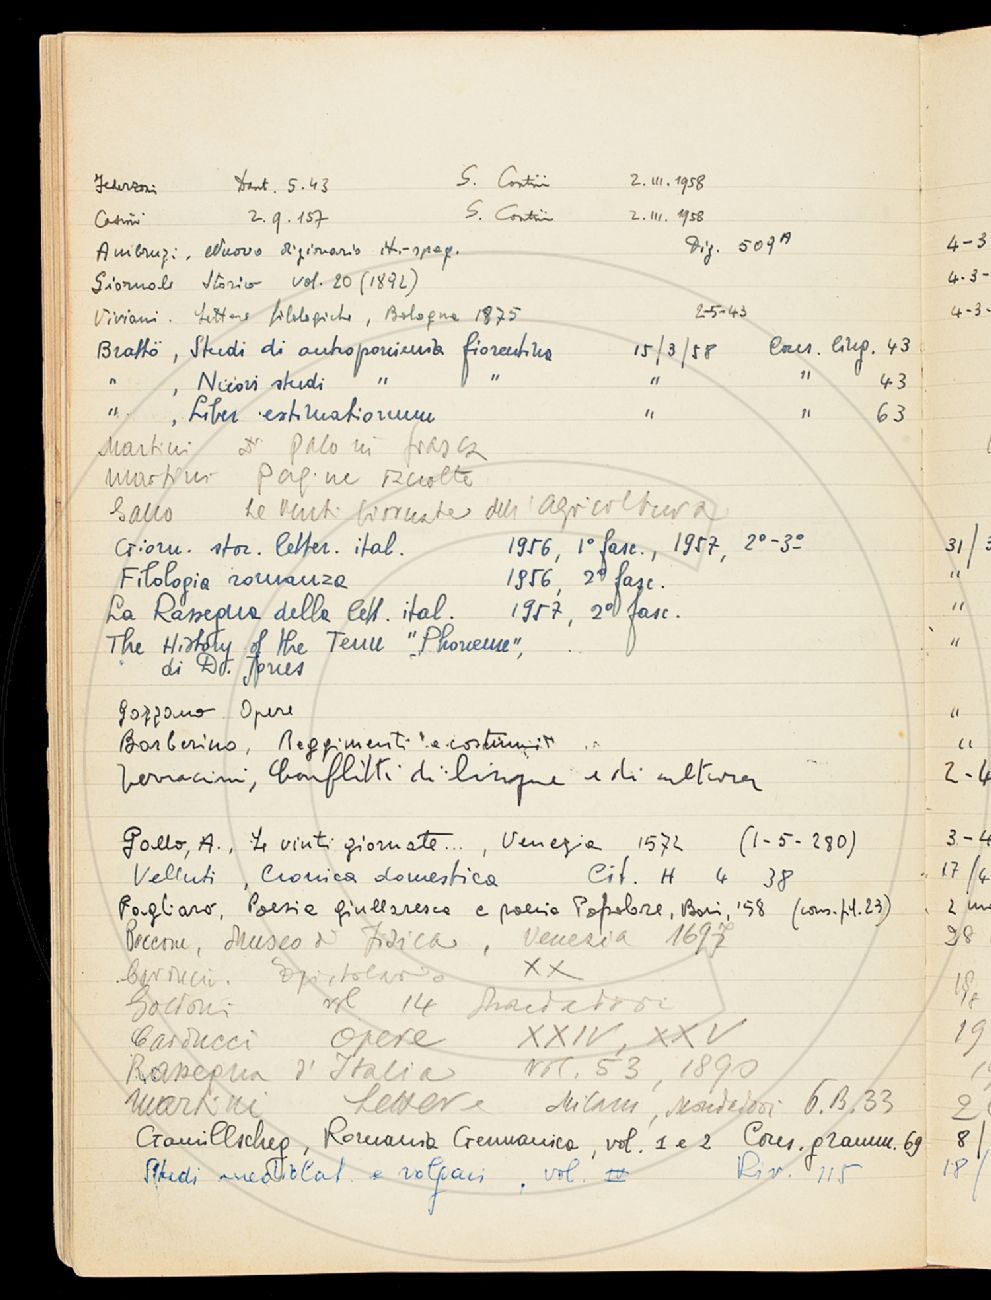 Federzoni Dant. 5.43 G. Contini 2.III.1958
Casini 2.9.157 G. Contini 2.III.1958
Ambruzzi, Nuovo dizionario it.-spag. Diz. 509A 4-3
Giornale Storico vol. 20 (1892) 4-3-
Viviani. Lettere filologiche, Bologna 1875 2-5-43 4-3-
Brattö, Studi di antroponimia fiorentina 15/3/58 Cons. ling. 43
" , Nuovi studi " " " " 43
" , Liber extimationum " " 63
Martini Di palo in frasca
Martini Pagine raccolte
Gallo Le Vinti Giornate dell'agricoltura
Giorn. stor. letter. ital. 1956, 1° fasc., 1957, 2°-3° 31/3
Filologia romanza 1956, 2° fasc. "
La Rassegna della lett. ital. 1957, 2° fasc. "
The History of the Term "Phoneme", "
di D. Jones
Gozzano Opere "
Barberino, Reggimenti e costumi "
Terracini, Conflitti di lingue e di cultura 2-4
Gallo, A., Le vinti giornate..., Venezia 1572 (1-5-280) 3-4
Velluti, Cronica domestica Cit. H 4 38 17/4
Pagliaro, Poesia giullaresca e poesia Popolare, Bari, '58 (cons.fil.23) 2
Boccone, Museo di Fisica, Venezia 1697 28
Carducci. Epistolario XX
Goldoni vol 14 Mondadori 18
Carducci Opere XXIV, XXV 19
Rassegna d'Italia vol. 53, 1890
Martini Lettere Milano, Mondadori 6.B.33 2
Gamillscheg, Romania Germanica, vol. 1 e 2 Cons. gramm. 69 8/
Studi mediolat. e volgari, vol. Riv. 115 18/